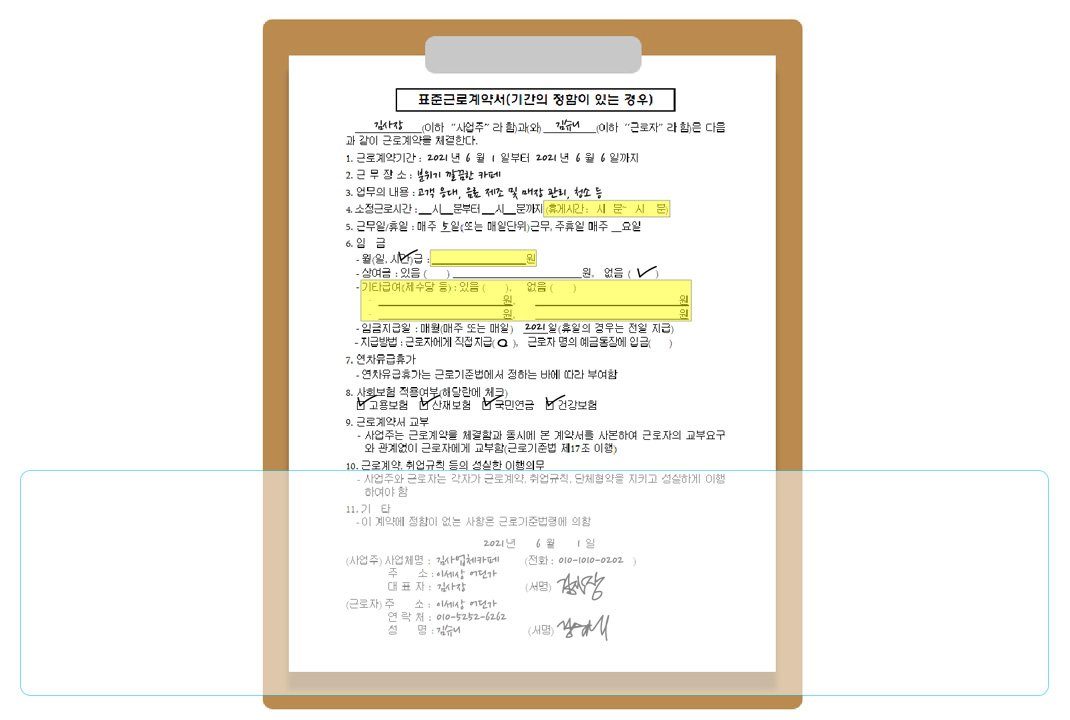 표준근로계약서(기간의 정함이 있는 경우)
김사장 (이하 "사업주" 라 함)과(와) 김슈니 (이하 "근로자" 라 함)은 다음
과 같이 근로계약을 체결한다.
1. 근로계약기간 : 2021 년 6 월 1 일부터 2021 년 6 월 6 일까지
2. 근 무 장 소 : 분위기 깔끔한 카페
3. 업무의 내용 : 고객 응대, 음료 제조 및 매장 관리, 청소 등
4. 소정근로시간 : __시__분부터 __시__분까지 (휴게시간 : 시 분~ 시 분)
5. 근무일/휴일 : 매주 5일(또는 매일단위)근무, 주휴일 매주 __요일
6. 임 금
- 월(일, 시간)급 : ____________원
- 상여금 : 있음 ( ) ____________원, 없음 ( ✓ )
- 기타급여(제수당 등) : 있음 ( ), 없음 ( )
· ____________원, ____________원
· ____________원, ____________원
- 임금지급일 : 매월(매주 또는 매일) 2021일(휴일의 경우는 전일 지급)
- 지급방법 : 근로자에게 직접지급( O ), 근로자 명의 예금통장에 입금( )
7. 연차유급휴가
- 연차유급휴가는 근로기준법에서 정하는 바에 따라 부여함
8. 사회보험 적용여부(해당란에 체크)
☑ 고용보험 ☑ 산재보험 ☑ 국민연금 ☑ 건강보험
9. 근로계약서 교부
- 사업주는 근로계약을 체결함과 동시에 본 계약서를 사본하여 근로자의 교부요구
와 관계없이 근로자에게 교부함(근로기준법 제17조 이행)
10. 근로계약, 취업규칙 등의 성실한 이행의무
- 사업주와 근로자는 각자가 근로계약, 취업규칙, 단체협약을 지키고 성실하게 이행
하여야 함
11. 기 타
- 이 계약에 정함이 없는 사항은 근로기준법령에 의함
2021년 6 월 1 일
(사업주) 사업체명 : 김사업체카페 (전화 : 010-1010-0202 )
주 소 : 이세상 어딘가
대 표 자 : 김사장 (서명) 김사장
(근로자) 주 소 : 이세상 어딘가
연 락 처 : 010-5252-6262
성 명 : 김슈니 (서명)